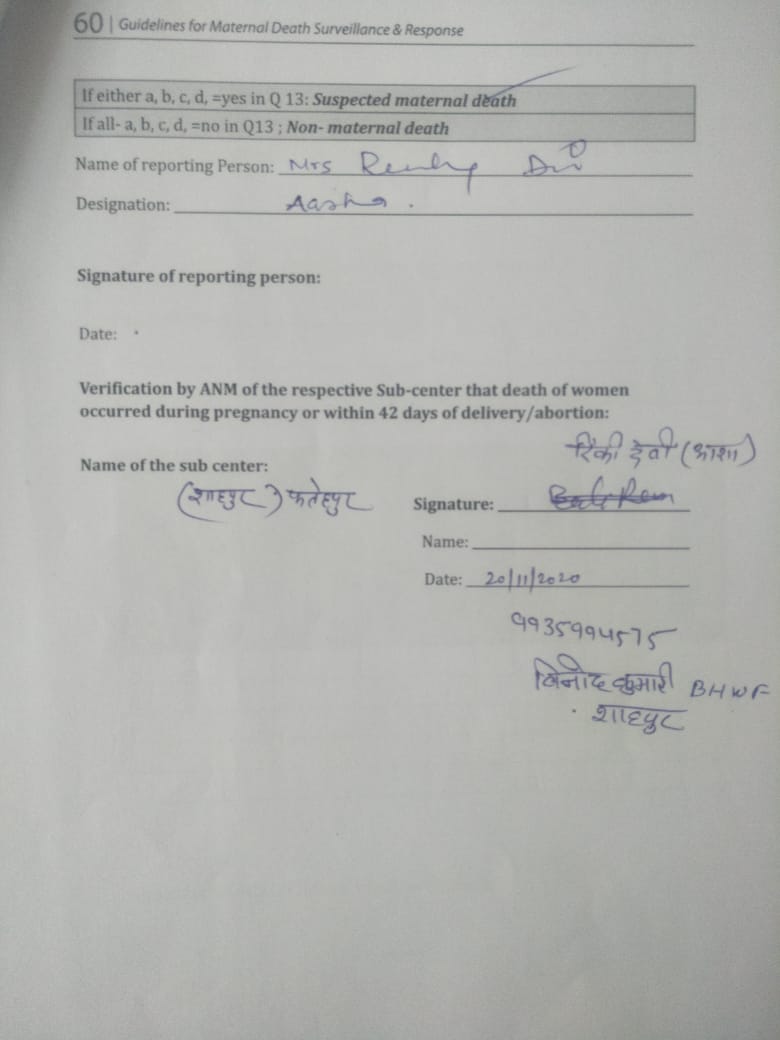 60 | Guidelines for Maternal Death Surveillance & Response
If either a, b, c, d, =yes in Q 13: Suspected maternal death
If all- a, b, c, d, =no in Q13 ; Non- maternal death
Name of reporting Person: Mrs
Designation: Aasha .
Signature of reporting person:
Date:
Verification by ANM of the respective Sub-center that death of women
occurred during pregnancy or within 42 days of delivery/abortion:
रिंकी देवी (आशा)
Name of the sub center:
(शाहपुर) फतेहपुर
Signature:
Name:
Date: 20/11/2020
9935994575
विनोद कुमारी BHWF
शाहपुर